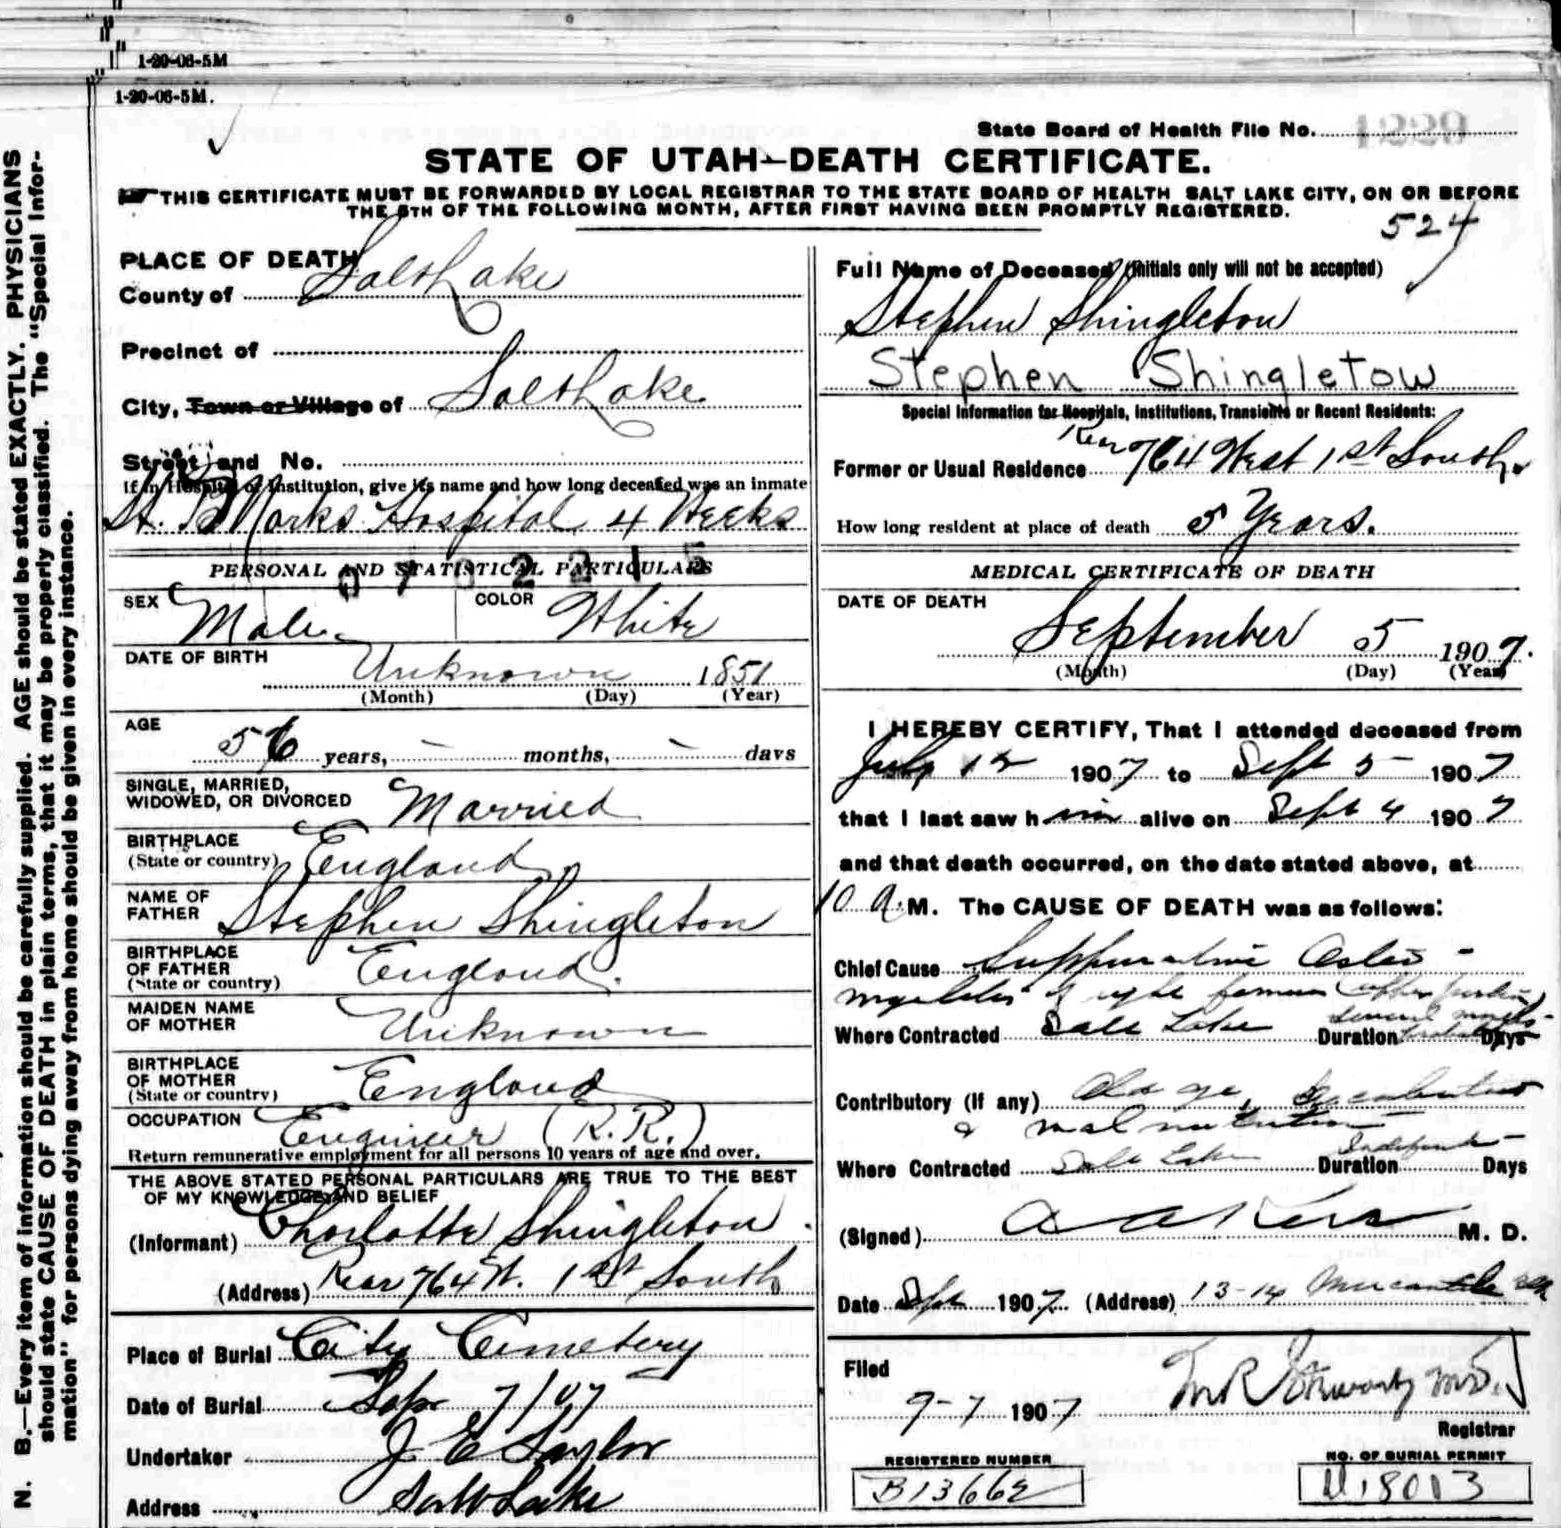 1-20-06-5M
1-20-06-5M.
State Board of Health File No.
STATE OF UTAH—DEATH CERTIFICATE.
THIS CERTIFICATE MUST BE FORWARDED BY LOCAL REGISTRAR TO THE STATE BOARD OF HEALTH SALT LAKE CITY, ON OR BEFORE
THE 5TH OF THE FOLLOWING MONTH, AFTER FIRST HAVING BEEN PROMPTLY REGISTERED.
524
N. B.—Every item of information should be carefully supplied. AGE should be stated EXACTLY. PHYSICIANS
should state CAUSE OF DEATH in plain terms, that it may be properly classified. The "Special Infor-
mation" for persons dying away from home should be given in every instance.
PLACE OF DEATH
County of Salt Lake
Precinct of
City, Town or Village of Salt Lake
Street and No.
If in Hospital or Institution, give its name and how long deceased was an inmate
St. Marks Hospital 4 Weeks
PERSONAL AND STATISTICAL PARTICULARS
SEX Male COLOR White
DATE OF BIRTH Unknown 1851
(Month) (Day) (Year)
AGE
56 years, months, days
SINGLE, MARRIED,
WIDOWED, OR DIVORCED Married
BIRTHPLACE
(State or country) England
NAME OF
FATHER Stephen Shingleton
BIRTHPLACE
OF FATHER
(State or country) England.
MAIDEN NAME
OF MOTHER Unknown
BIRTHPLACE
OF MOTHER
(State or country) England
OCCUPATION Engineer (R.R.)
Return remunerative employment for all persons 10 years of age and over.
THE ABOVE STATED PERSONAL PARTICULARS ARE TRUE TO THE BEST
OF MY KNOWLEDGE AND BELIEF
(Informant) Charlotte Shingleton.
(Address) Rear 764 W. 1st South
Place of Burial City Cemetery
Date of Burial Sep 7/07
Undertaker J E Taylor
Address Salt Lake
Full Name of Deceased (Initials only will not be accepted)
Stephen Shingleton
Stephen Shingletow
Special Information for Hospitals, Institutions, Transients or Recent Residents:
Former or Usual Residence Rear 764 West 1st South.
How long resident at place of death 5 Years.
MEDICAL CERTIFICATE OF DEATH
DATE OF DEATH
September 5 1907.
(Month) (Day) (Year)
I HEREBY CERTIFY, That I attended deceased from
July 12 1907 to Sept 5 1907
that I last saw him alive on Sept 4 1907
and that death occurred, on the date stated above, at
10 a.M. The CAUSE OF DEATH was as follows:
Chief Cause Suppurative Osteo-
myelitis of right femur (upper portion)
Where Contracted Salt Lake Duration several months Days
Contributory (if any) Old age,
& malnutrition
Where Contracted Salt Lake Duration Indefinite Days
(Signed) M. D.
Date Sept 1907 (Address) 13-14 Mercantile
Filed
9-7 1907
Registrar
REGISTERED NUMBER
B13662
NO. OF BURIAL PERMIT
18013